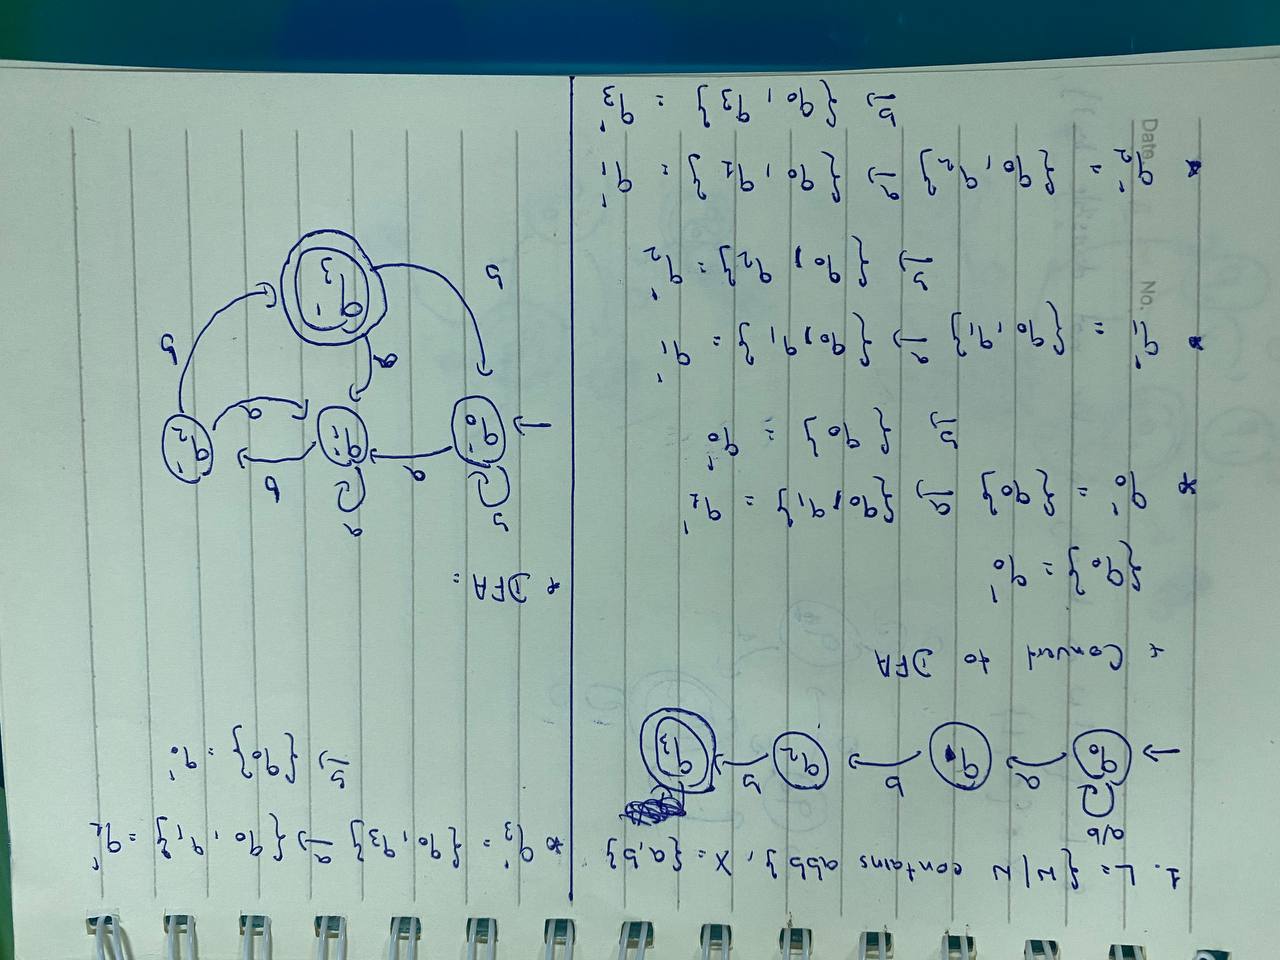 1. L = {W/W contains abb}, X = {a,b}
a/b
→ q₀ a→ q₁ b→ q₂ b→ q₃
+ Convert to DFA
{q₀} = q₀'
* q₀' = {q₀} a→ {q₀, q₁} = q₁'
b→ {q₀} = q₀'
* q₁' = {q₀, q₁} a→ {q₀, q₁} = q₁'
b→ {q₀, q₂} = q₂'
* q₂' = {q₀, q₂} a→ {q₀, q₁} = q₁'
b→ {q₀, q₃} = q₃'
* q₃' = {q₀, q₃} a→ {q₀, q₁} = q₁'
b→ {q₀} = q₀'
+ DFA =
b a
→ q₀' a q₁' b a q₂'
b a b
q₃'
Date
No.